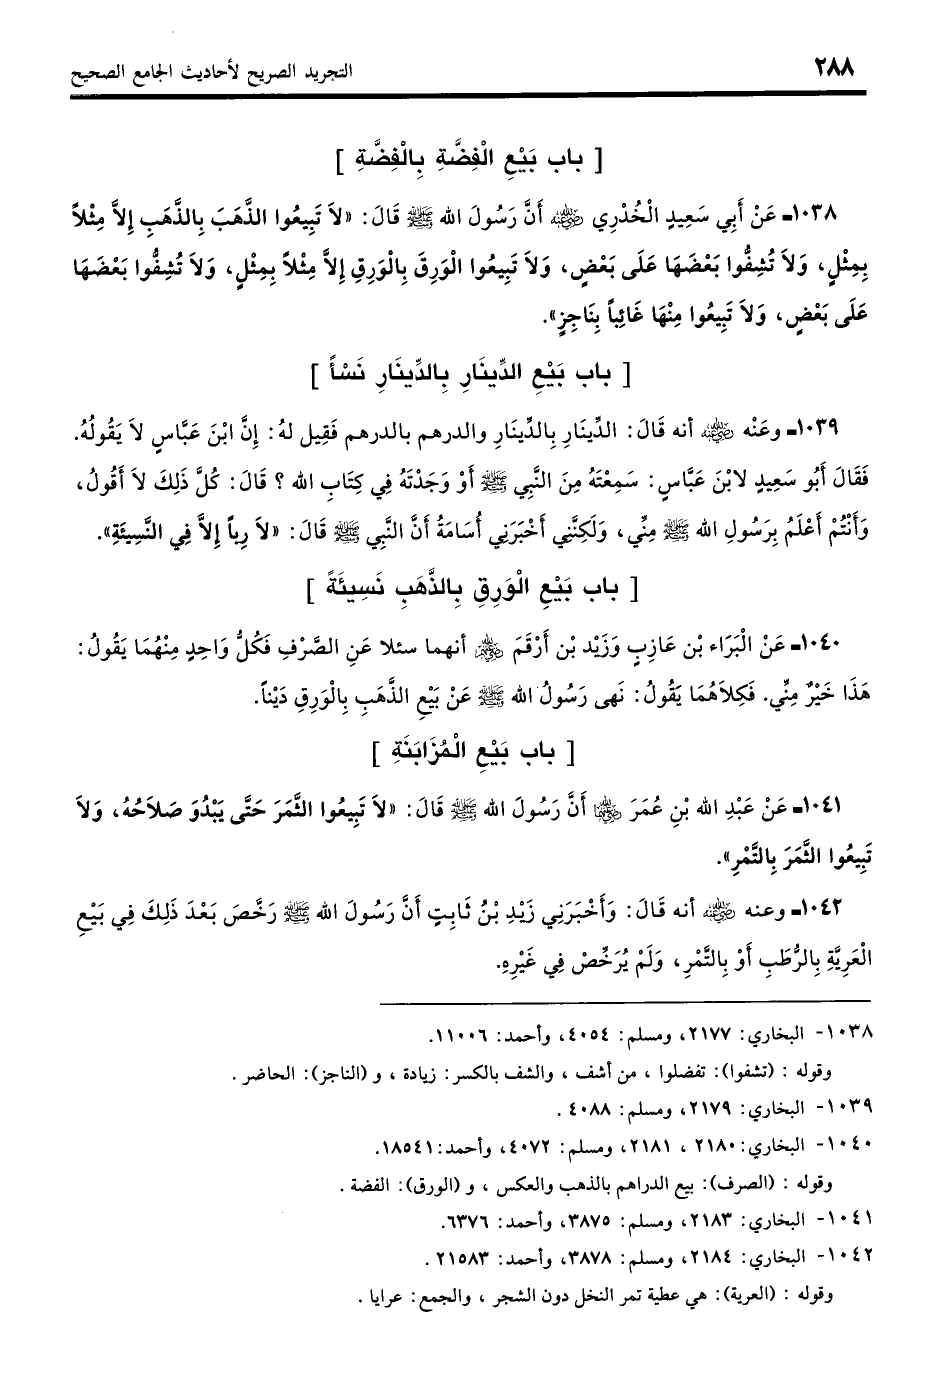 ٢٨٨
التجريد الصريح لأحاديث الجامع الصحيح
[ باب بَيْعِ الْفِضَّةِ بِالْفِضَّةِ ]
١٠٣٨ـ عَنْ أَبِي سَعِيدٍ الْخُدْرِي ﵁ أَنَّ رَسُولَ الله ﷺ قَالَ: «لاَ تَبِيعُوا الذَّهَبَ بِالذَّهَبِ إِلاَّ مِثْلاً
بِمِثْلٍ، وَلاَ تُشِفُّوا بَعْضَهَا عَلَى بَعْضٍ، وَلاَ تَبِيعُوا الْوَرِقَ بِالْوَرِقِ إِلاَّ مِثْلاً بِمِثْلٍ، وَلاَ تُشِفُّوا بَعْضَهَا
عَلَى بَعْضٍ، وَلاَ تَبِيعُوا مِنْهَا غَائِباً بِنَاجِزٍ».
[ باب بَيْعِ الدِّينَارِ بِالدِّينَارِ نَسْأً ]
١٠٣٩ـ وعَنْه ﵁ أنه قَالَ: الدِّينَارِ بِالدِّينَارِ والدرهم بالدرهم فَقِيل لهُ: إِنَّ ابْنَ عَبَّاسٍ لاَ يَقُولُهُ.
فَقَالَ أَبُو سَعِيدٍ لابْنَ عَبَّاسٍ: سَمِعْتَهُ مِنَ النَّبِي ﷺ أَوْ وَجَدْتَهُ فِي كِتَابِ الله ؟ قَالَ: كُلَّ ذَلِكَ لاَ أَقُولُ،
وَأَنْتُمْ أَعْلَمُ بِرَسُولِ الله ﷺ مِنِّي، وَلَكِنَّنِي أَخْبَرَنِي أُسَامَةُ أَنَّ النَّبِي ﷺ قَالَ: «لاَ رِباً إِلاَّ فِي النَّسِيئَةِ».
[ باب بَيْعِ الْوَرِقِ بِالذَّهَبِ نَسِيئَةً ]
١٠٤٠ـ عَنْ الْبَرَاء بْن عَازِبٍ وَزَيْد بْن أَرْقَمَ ﵃ أنهما سئلا عَنِ الصَّرْفِ فَكُلُّ وَاحِدٍ مِنْهُمَا يَقُولُ:
هَذَا خَيْرٌ مِنِّي. فَكِلاَهُمَا يَقُولُ: نَهى رَسُولُ الله ﷺ عَنْ بَيْعِ الذَّهَبِ بِالْوَرِقِ دَيْناً.
[ باب بَيْعِ الْمُزَابَنَةِ ]
١٠٤١ـ عَنْ عَبْدِ الله بْنِ عُمَرَ ﵄ أَنَّ رَسُولَ الله ﷺ قَالَ: «لاَ تَبِيعُوا الثَّمَرَ حَتَّى يَبْدُوَ صَلاَحُهُ، وَلاَ
تَبِيعُوا الثَّمَرَ بِالتَّمْرِ».
١٠٤٢ـ وعنه ﵁ أنه قَالَ: وَأَخْبَرَنِي زَيْدِ بْنُ ثَابِتٍ أَنَّ رَسُولَ الله ﷺ رَخَّصَ بَعْدَ ذَلِكَ فِي بَيْعِ
الْعَرِيَّةِ بِالرُّطَبِ أَوْ بِالتَّمْرِ، وَلَمْ يُرَخِّصْ فِي غَيْرِهِ.
١٠٣٨- البخاري: ٢١٧٧، ومسلم: ٤٠٥٤، وأحمد: ١١٠٠٦.
وقوله : (تشفوا): تفضلوا ، من أشف ، والشف بالكسر: زيادة ، و (الناجز): الحاضر .
١٠٣٩- البخاري: ٢١٧٩، ومسلم: ٤٠٨٨ .
١٠٤٠- البخاري: ٢١٨٠ ، ٢١٨١، ومسلم: ٤٠٧٢، وأحمد: ١٨٥٤١.
وقوله : (الصرف): بيع الدراهم بالذهب والعكس ، و (الورق): الفضة .
١٠٤١- البخاري: ٢١٨٣، ومسلم: ٣٨٧٥، وأحمد: ٦٣٧٦.
١٠٤٢- البخاري: ٢١٨٤، ومسلم: ٣٨٧٨، وأحمد: ٢١٥٨٣ .
وقوله : (العرية): هي عطية تمر النخل دون الشجر ، والجمع: عرايا .